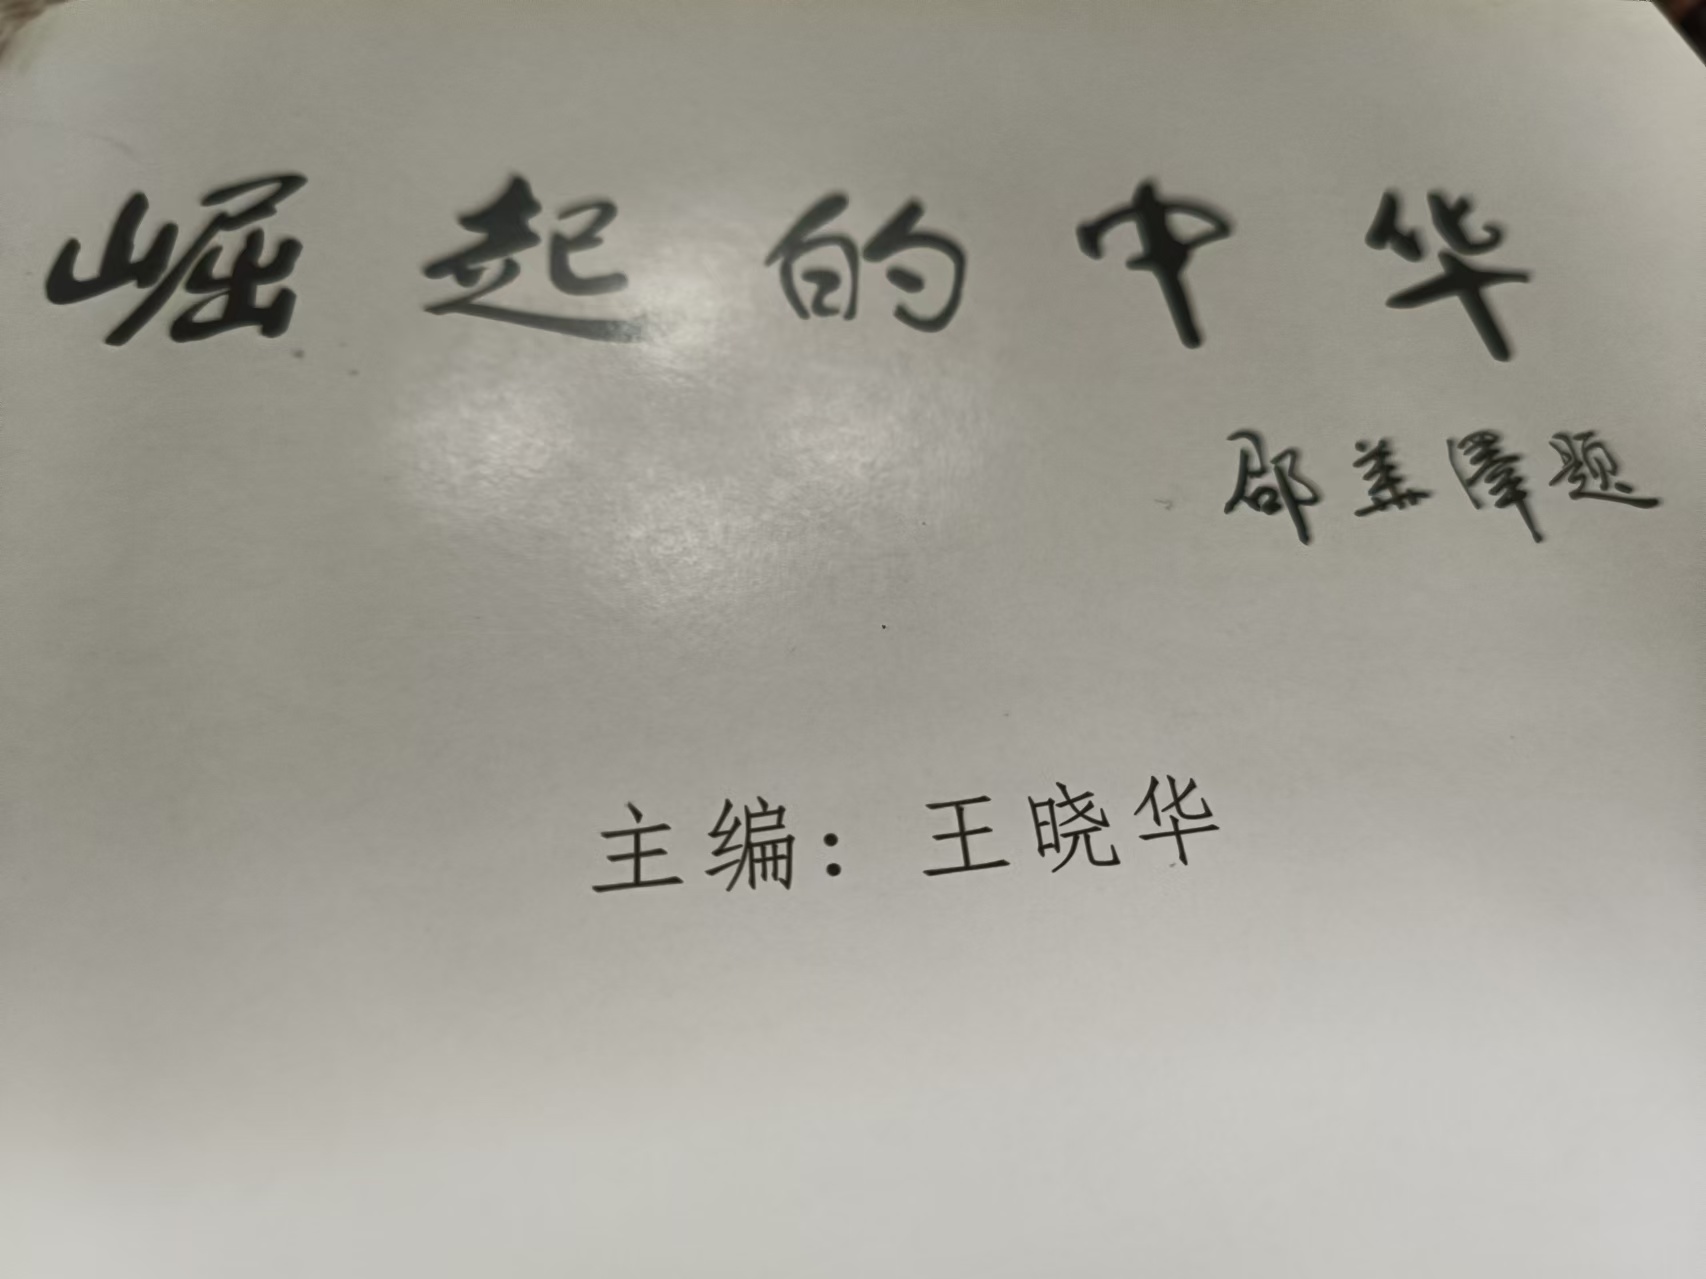 崛起的中华
邵盖澤题
主编：王晓华